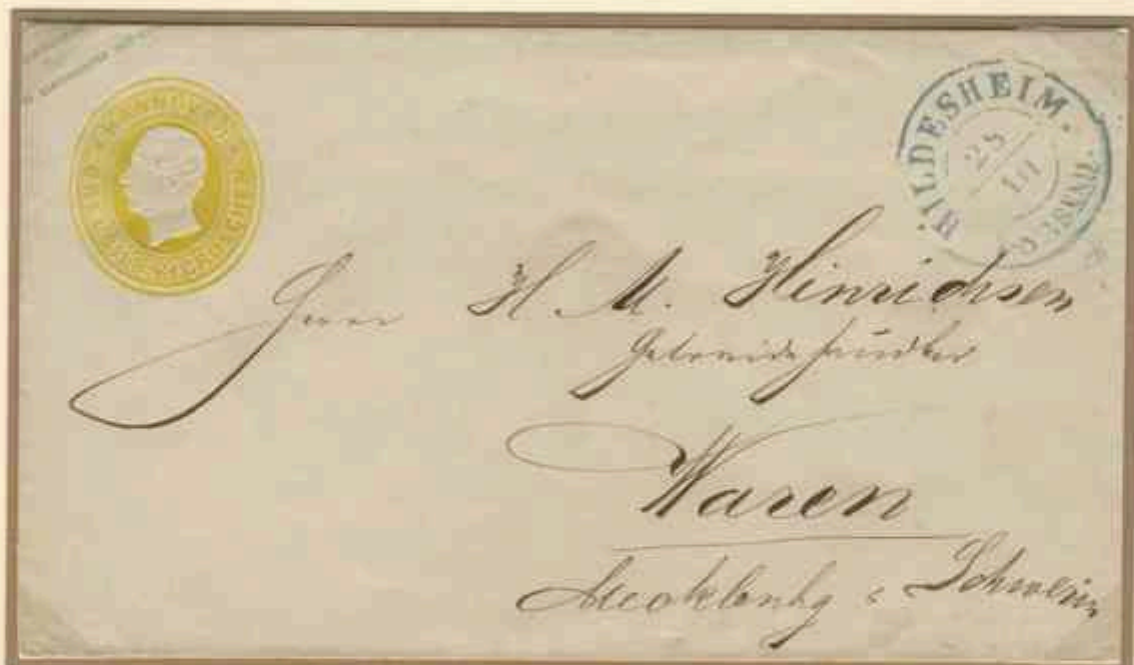 HANNOVER
HILDESHEIM.
28
Herrn H. M. Hinrichsen
Getreidehändler
Waren
Mecklenbg : Schwerin